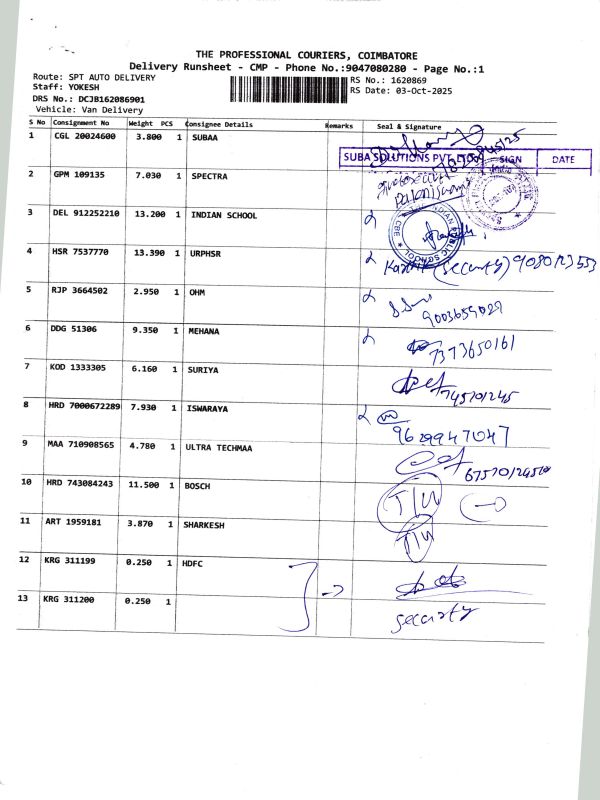 THE PROFESSIONAL COURIERS, COIMBATORE
Delivery Runsheet - CMP - Phone No.:9047080280 - Page No.:1
Route: SPT AUTO DELIVERY
RS No.: 1620869
Staff: YOKESH
RS Date: 03-Oct-2025
DRS No.: DCJB162086901
Vehicle: Van Delivery
S No Consignment No Weight PCS Consignee Details Remarks Seal & Signature
1 CGL 20024600 3.800 1 SUBAA
SUBA SOLUTIONS PVT LTD SIGN DATE
2 GPM 109135 7.030 1 SPECTRA
3 DEL 912252210 13.200 1 INDIAN SCHOOL
INDIAN PUBLIC SCHOOL CBE
4 HSR 7537770 13.390 1 URPHSR
(Security)
5 RJP 3664502 2.950 1 OHM
9003659029
6 DDG 51306 9.350 1 MEHANA
7373650161
7 KOD 1333305 6.160 1 SURIYA
745701245
8 HRD 7000672289 7.930 1 ISWARAYA
9629947047
9 MAA 710908565 4.780 1 ULTRA TECHMAA
10 HRD 743084243 11.500 1 BOSCH
11 ART 1959181 3.870 1 SHARKESH
12 KRG 311199 0.250 1 HDFC
13 KRG 311200 0.250 1
security